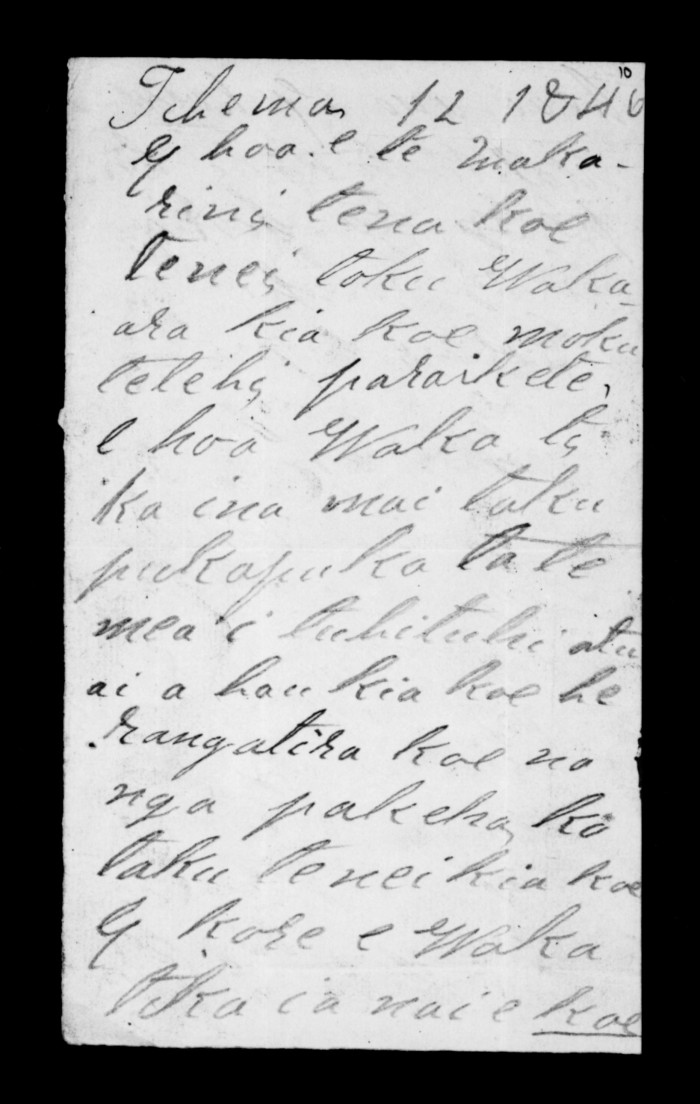 10
Tehema 12 184
E hoa e te Maka-
rini tena koe
tenei toku Waka-
ara kia koe moku
tetehi paraikete,
e hoa Waka ti
ka ina mai taku
pukapuka ta te
mea i tuhituhi atu
ai a hau kia koe he
rangatira koe no
nga pakeha ko
taku tenei kia koe
E kore e Waka
tika ia mai e koe